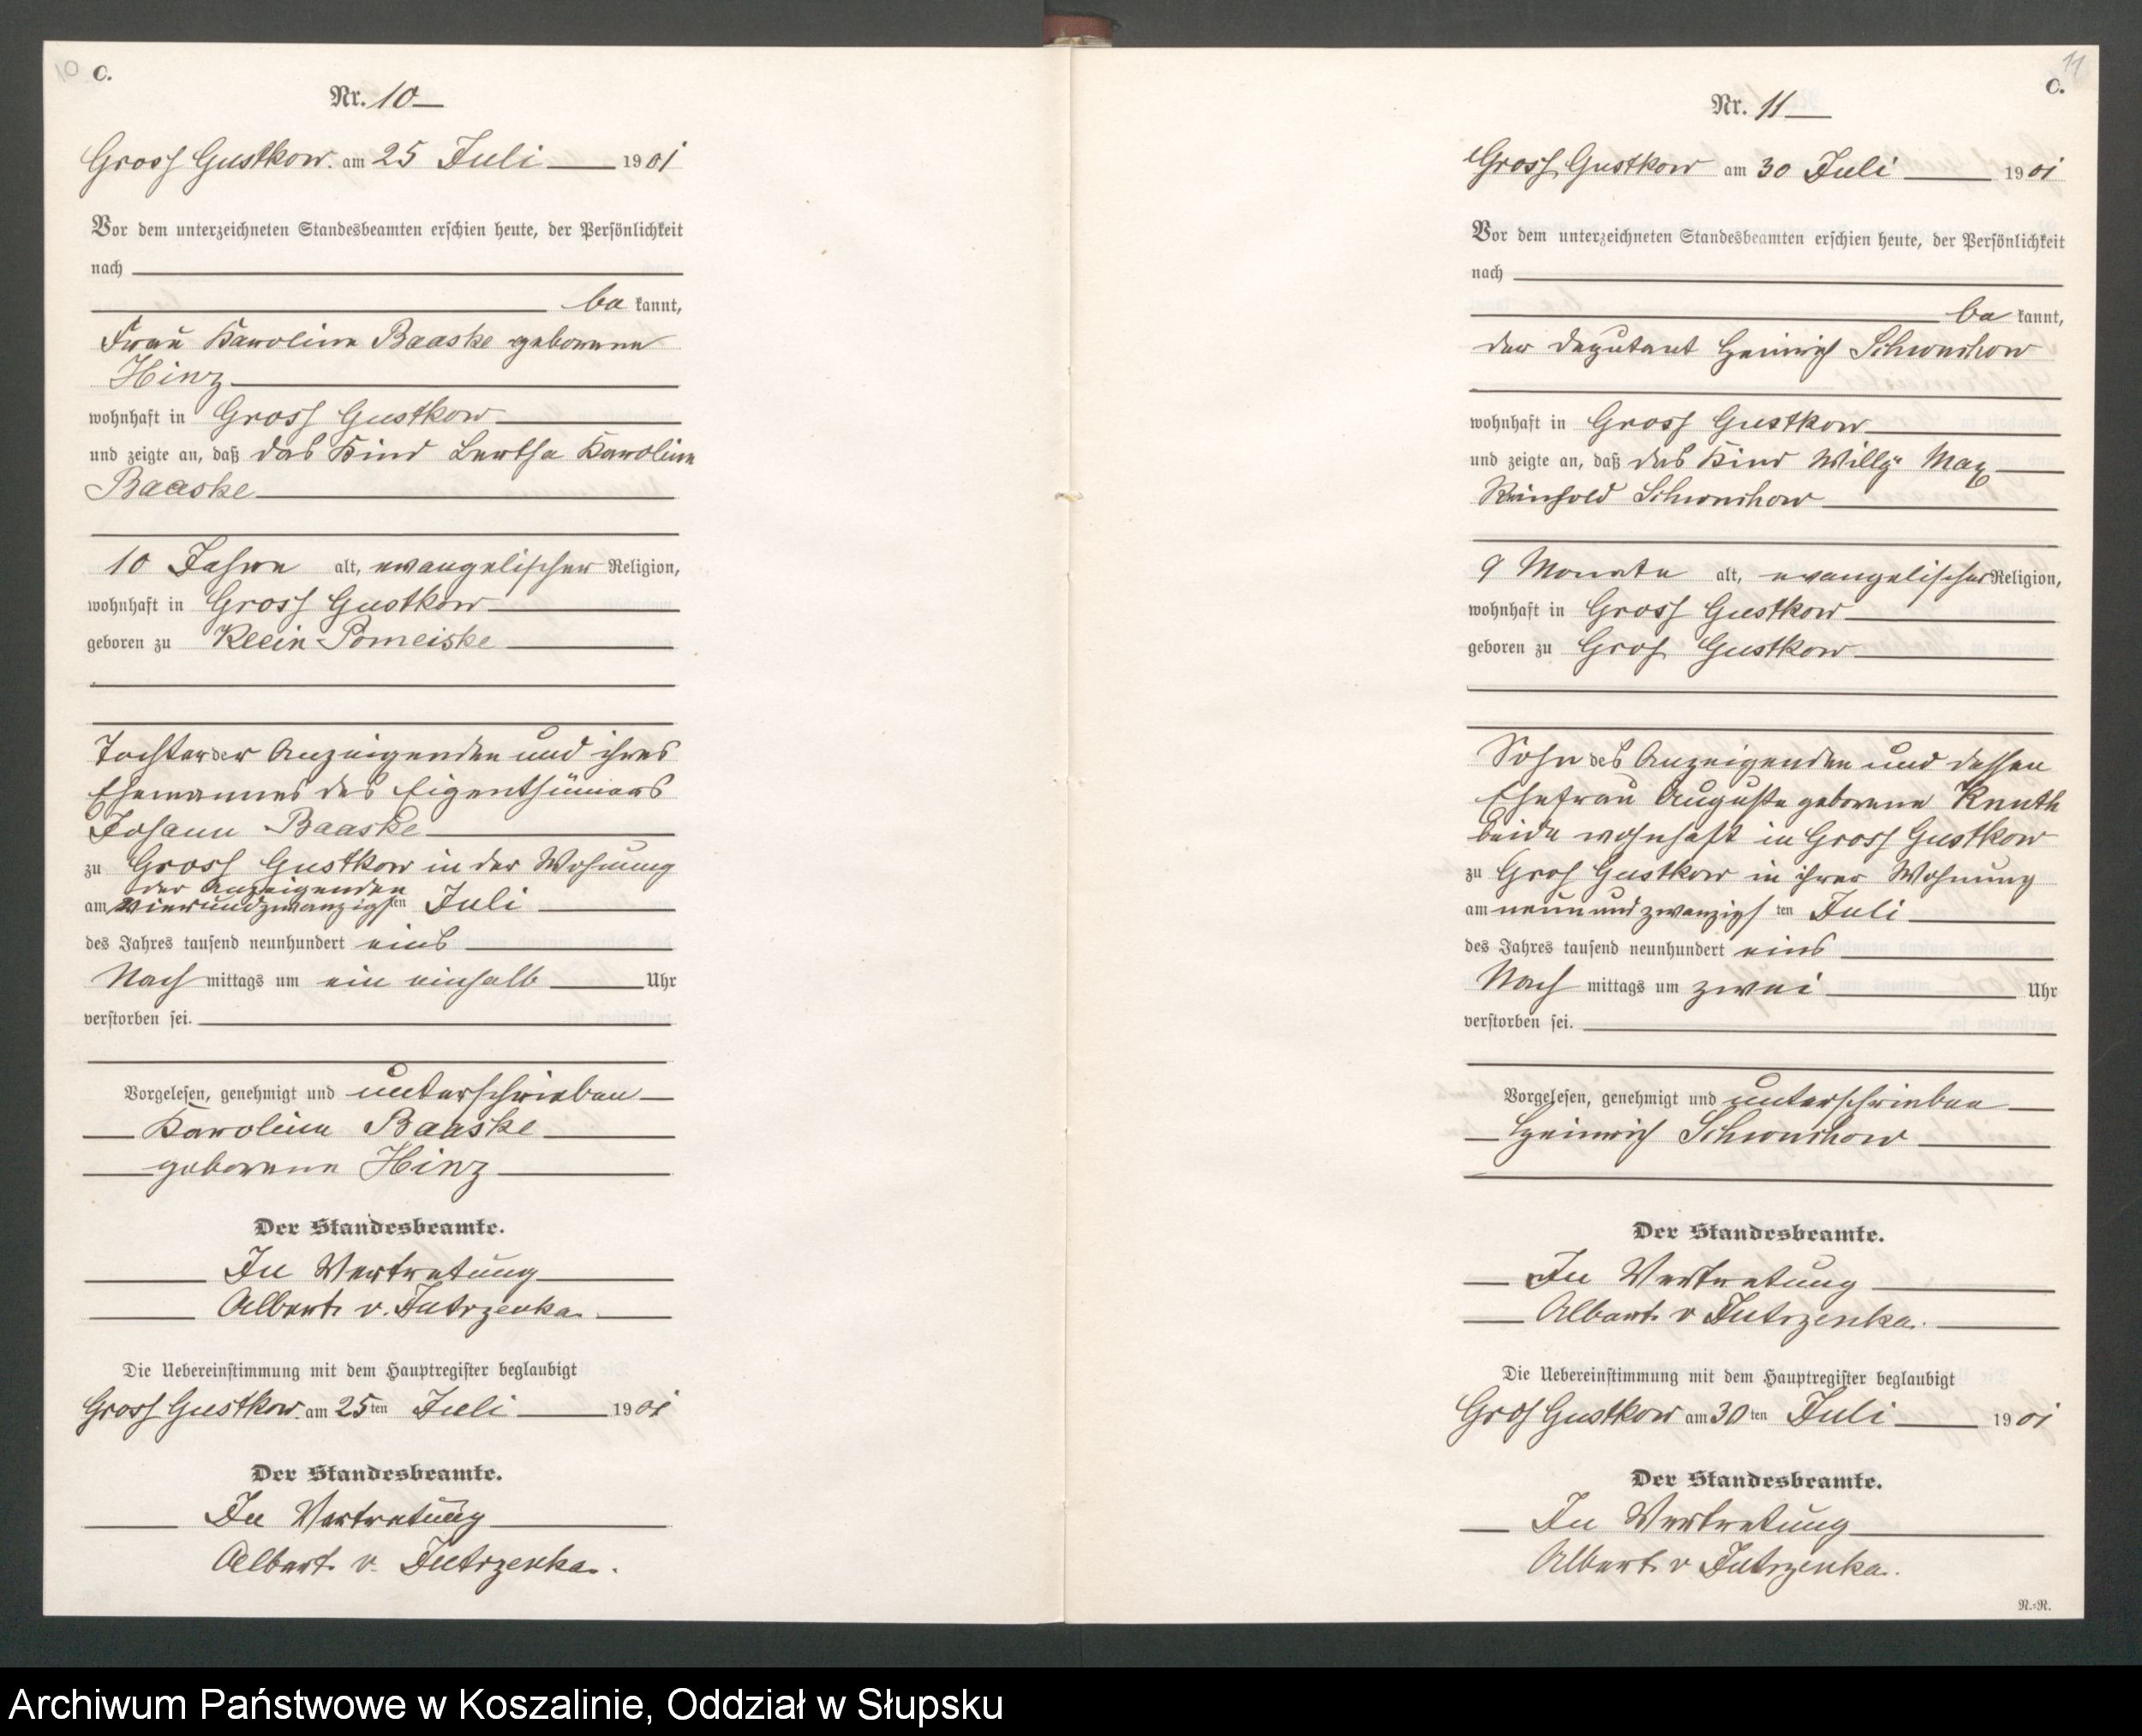 10 C.
Nr. 10
Gross Gustkow. am 25 Juli 1901
Vor dem unterzeichneten Standesbeamten erschien heute, der Persönlichkeit
nach
be kannt,
Frau Karoline Baaske geborene
Hinz
wohnhaft in Gross Gustkow
und zeigte an, daß das Kind Bertha Karoline
Baaske
10 Jahre alt, evangelischer Religion,
wohnhaft in Gross Gustkow
geboren zu Klein-Pomeiske
Tochter der Anzeigenden und ihres
Ehemannes des Eigenthümers
Johann Baaske
zu Gross Gustkow in der Wohnung
der Anzeigenden
am vierundzwanzigsten Juli
des Jahres tausend neunhundert eins
Nach mittags um ein einhalb Uhr
verstorben sei.
Vorgelesen, genehmigt und unterschrieben
Karoline Baaske
geborene Hinz
Der Standesbeamte.
In Vertretung
Albert v. Jutrzenka.
Die Uebereinstimmung mit dem Hauptregister beglaubigt
Gross Gustkow. am 25ten Juli 1901
Der Standesbeamte.
In Vertretung
Albert v. Jutrzenka.
11
C.
Nr. 11
Gross Gustkow am 30 Juli 1901
Vor dem unterzeichneten Standesbeamten erschien heute, der Persönlichkeit
nach
be kannt,
der Deputant Heinrich
wohnhaft in Gross Gustkow
und zeigte an, daß das Kind Willy Max
Reinhold
9 Monate alt, evangelischer Religion,
wohnhaft in Gross Gustkow
geboren zu Gros Gustkow
Sohn des Anzeigenden und dessen
Ehefrau Auguste geborene Knuth
beide wohnhaft in Gross Gustkow
zu Gros Gustkow in ihrer Wohnung
am neunundzwanzigsten Juli
des Jahres tausend neunhundert eins
Nach mittags um zwei Uhr
verstorben sei.
Vorgelesen, genehmigt und unterschrieben
Heinrich
Der Standesbeamte.
In Vertretung
Albert v Jutrzenka.
Die Uebereinstimmung mit dem Hauptregister beglaubigt
Gros Gustkow am 30ten Juli 1901
Der Standesbeamte.
In Vertretung
Albert v Jutrzenka.
N.=N.
Archiwum Państwowe w Koszalinie, Oddział w Słupsku